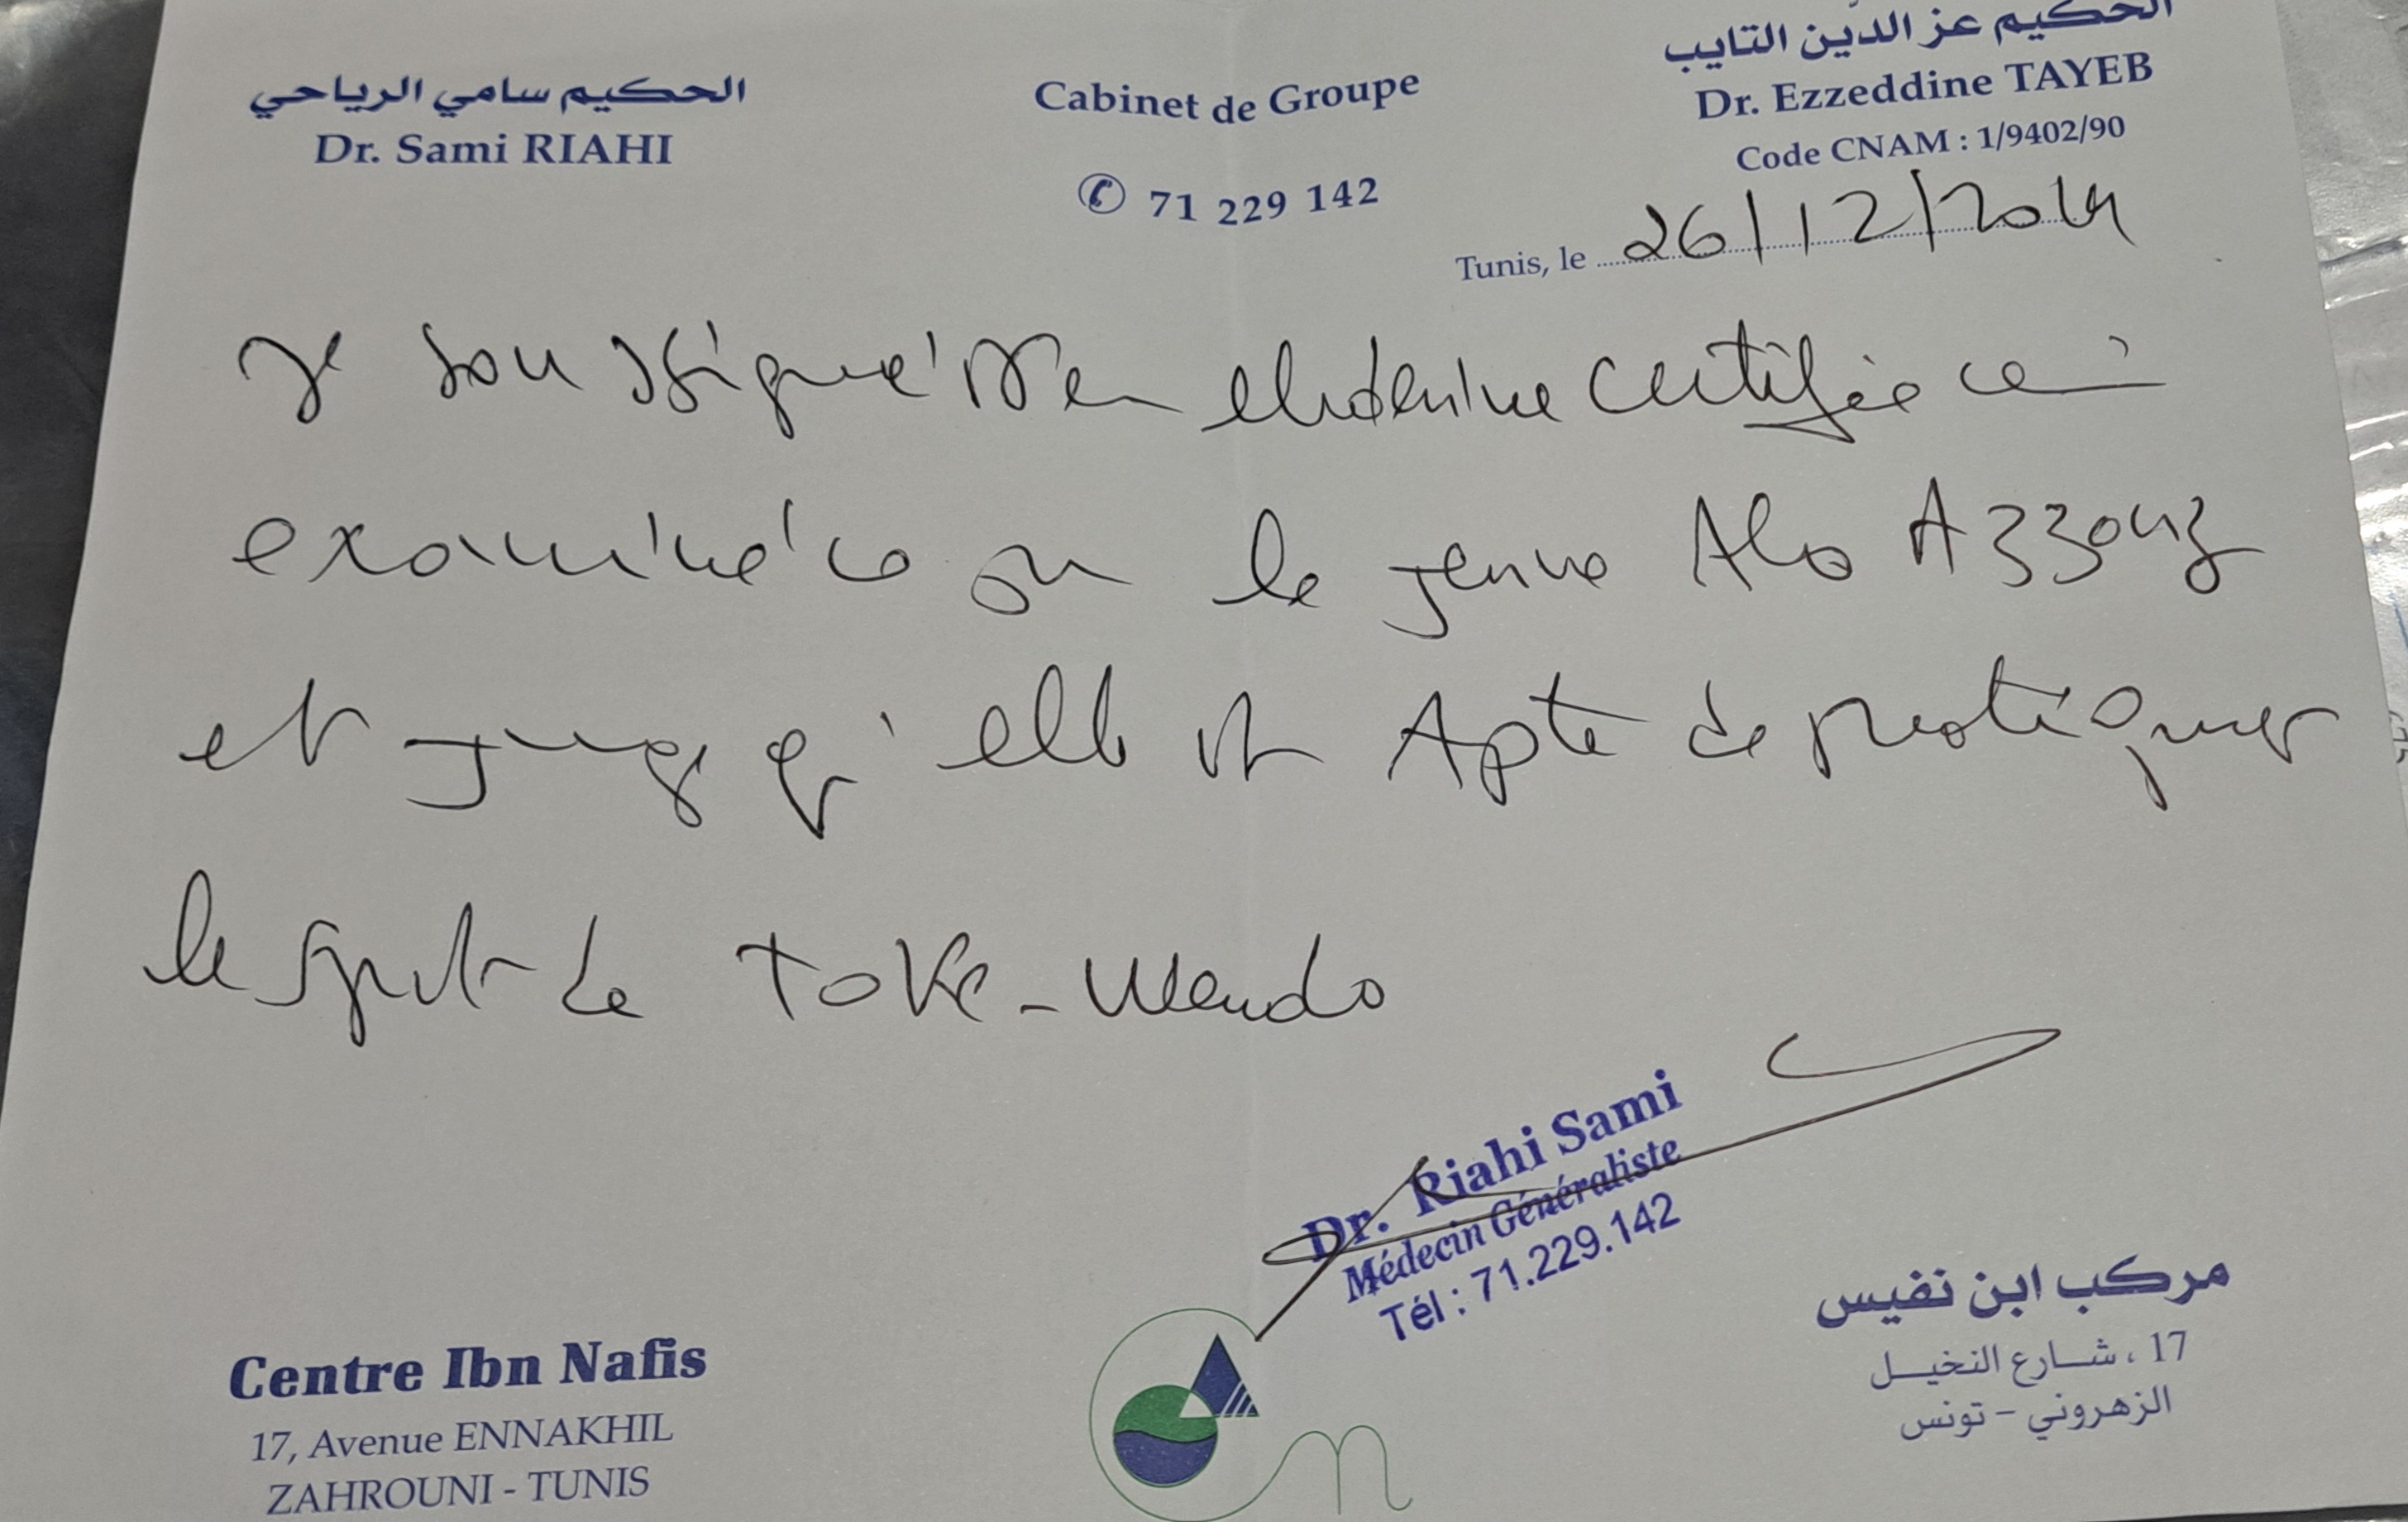 الحكيم سامي الرياحي
Dr. Sami RIAHI
Cabinet de Groupe
✆ 71 229 142
الحكيم عز الدين التايب
Dr. Ezzeddine TAYEB
Code CNAM : 1/9402/90
Tunis, le 26/12/2014
Je soussigné certifie
examiné ce jour le jeune Ala Azzouz
et juge qu'elle est Apte de pratiquer
le sport de Take-Wendo
Dr. Riahi Sami
Médecin Généraliste
Tél : 71.229.142
Centre Ibn Nafis
17, Avenue ENNAKHIL
ZAHROUNI - TUNIS
مركب ابن نفيس
17، شارع النخيل
الزهروني - تونس